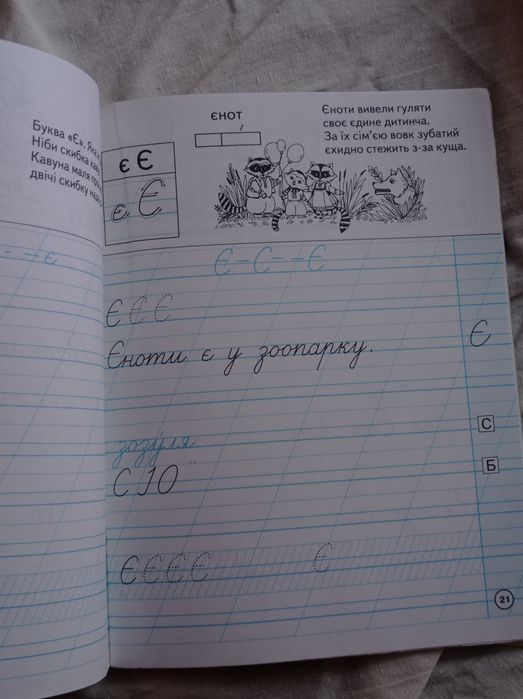 Буква «Є».
Ніби скибка
Кавуна маля
двічі скибку
є Є
є Є
ЄНОТ
Єноти вивели гуляти
своє єдине дитинча.
За їх сім'єю вовк зубатий
єхидно стежить з-за куща.
є
Є – С – – Є
Є Є Є
Єноти є у зоопарку.
Є
зозуля
С
С І О
Б
Є Є Є Є Є
21